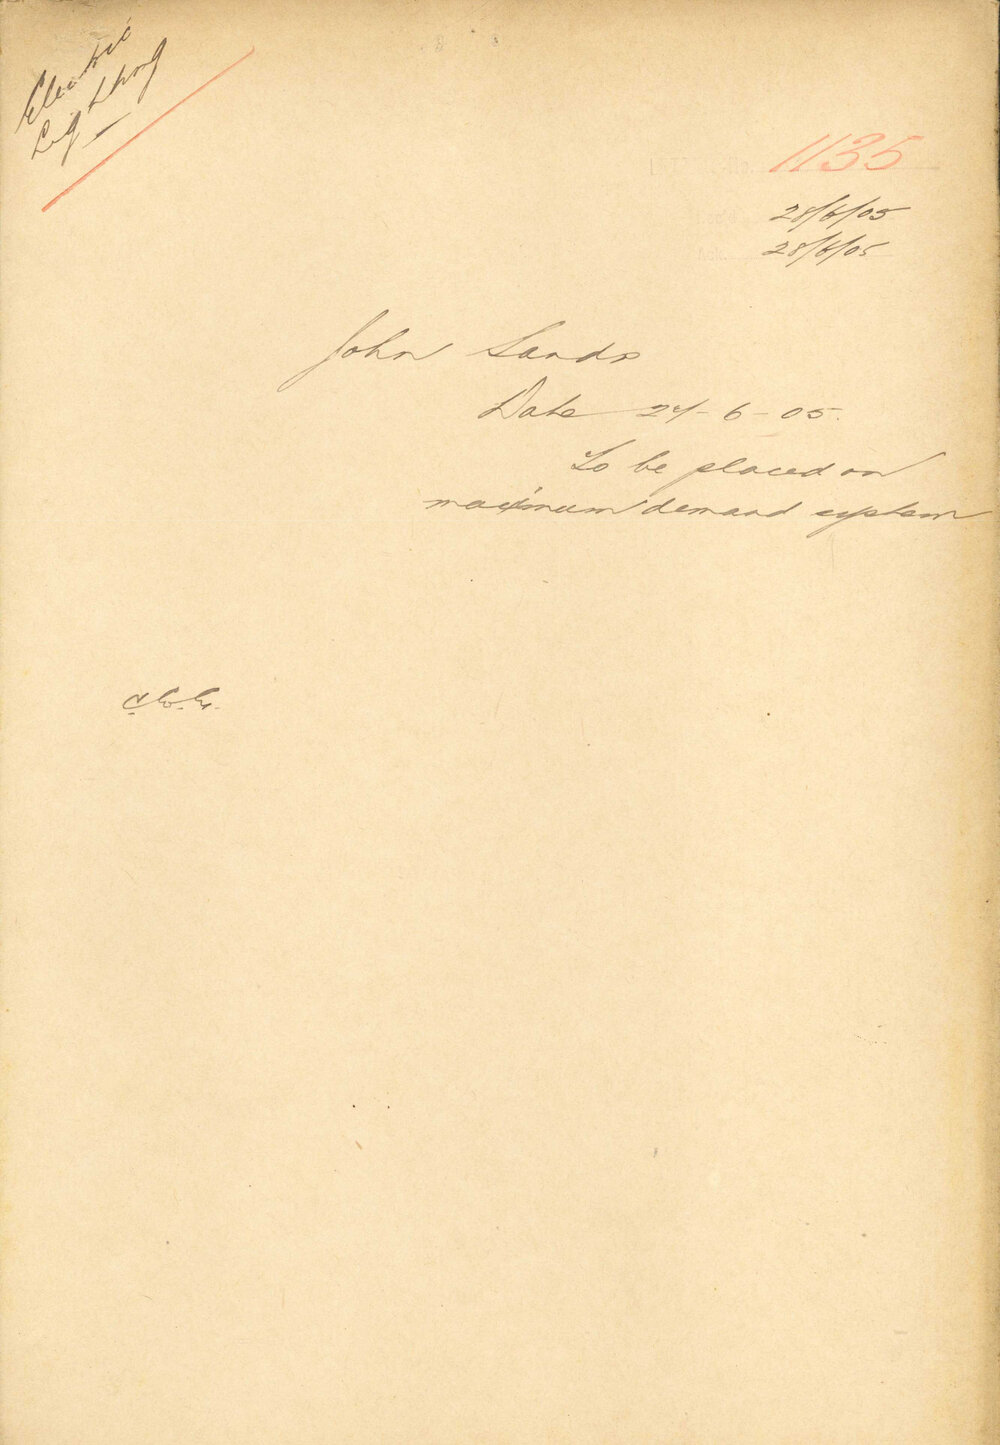 Electric
Lighting
1135
28/6/05
28/6/05
John Sands
Date 24-6-05.
To be placed on
maximum demand system